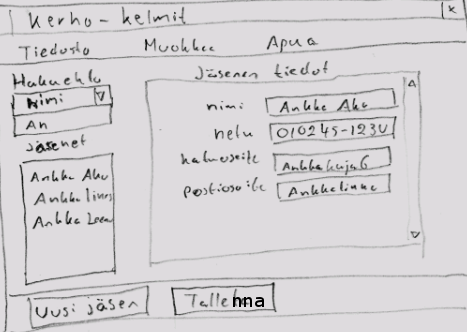 Kerho-kelmit
Tiedosto Muokkaa Apua
Hakuehto
nimi
An
jäsenet
Ankka Aku
Ankka Iines
Ankka Leena
Jäsenen tiedot
nimi Ankka Aku
hetu 010245-123U
katuosoite Ankkakuja 6
postiosoite Ankkalinna
Uusi jäsen Talletenna